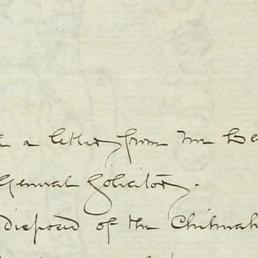 a letter from Mr
General Solicitor.
disposed of the